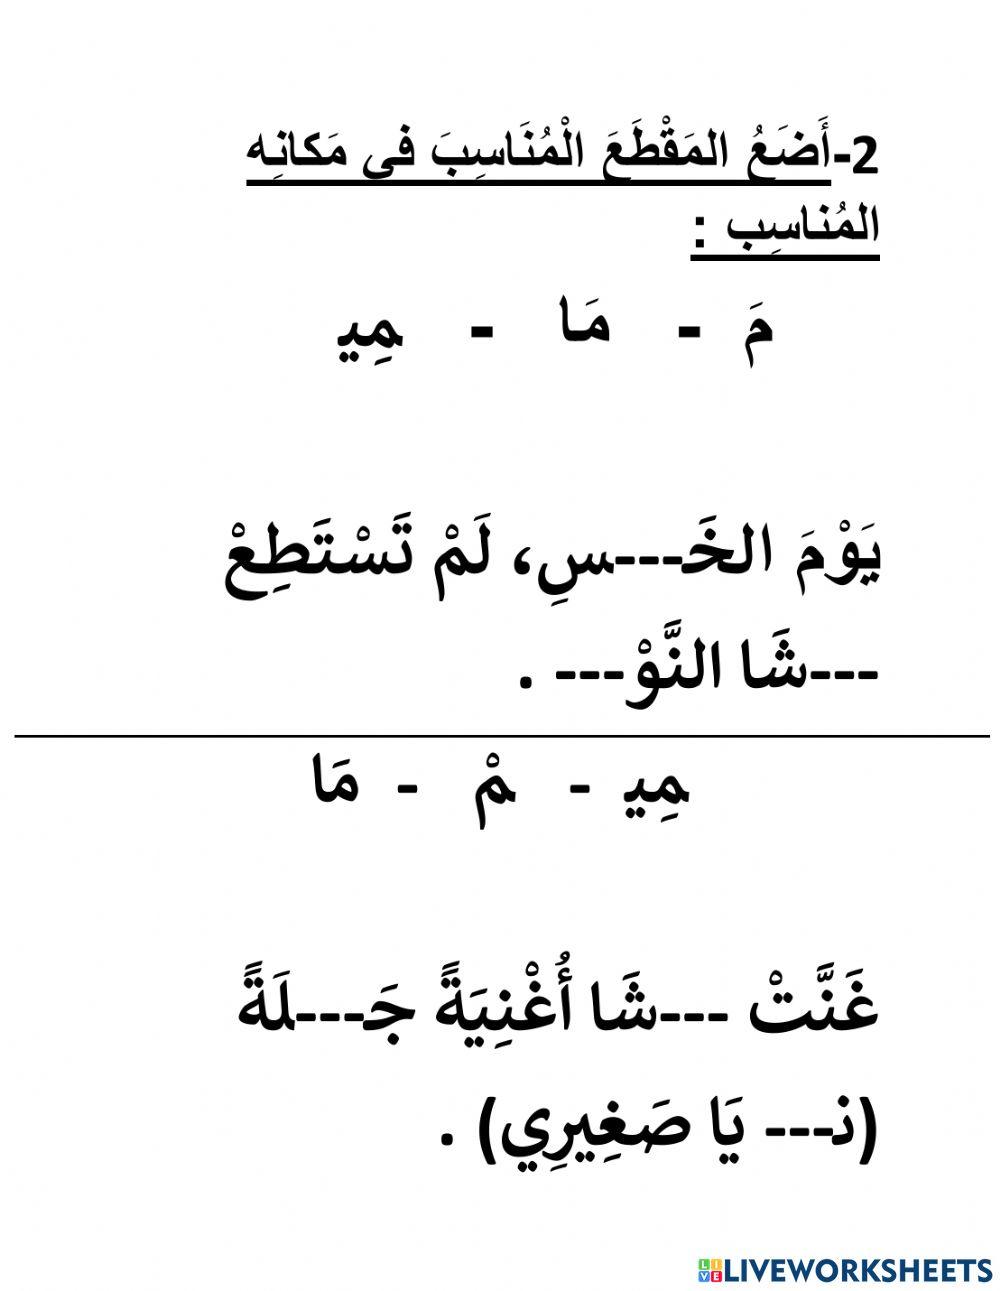 2-أَضَعُ المَقْطَعَ الْمُنَاسِبَ في مَكانِه
المُناسِب :
مَ - مَا - مِيـ
يَوْمَ الخَـ---ـسِ، لَمْ تَسْتَطِعْ
---شَا النَّوْ--- .
مِيـ - مْ - مَا
غَنَّتْ ---شَا أُغْنِيَةً جَـ---ـلَةً
(نـ--- يَا صَغِيرِي) .
LIVEWORKSHEETS